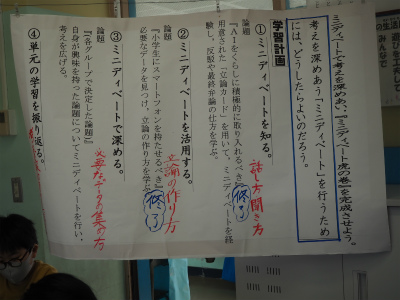 ミニディベートで考えを深めあい、『ミニディベート虎の巻』を完成させよう。
考えを深めあう「ミニディベート」を行うため
には、どうしたらよいのだろう。
学習計画
①ミニディベートを知る。
話し方・聞き方
論題
『AIをくらしに積極的に取り入れるべき』
修了
用意された「立論カード」を用いて、ミニディベートを経
験し、反駁や最終弁論の仕方を学ぶ。
②ミニディベートを活用する。
立論の作り方
論題
『小学生にスマートフォンを持たせるべき』
修了
必要なデータを見つけ、立論の作り方を学ぶ。
③ミニディベートで深める。
必要なデータの集め方
論題
『各グループで決定した論題』
自身が興味を持った論題についてミニディベートを行い、
考えを広げる。
④単元の学習を振り返る。